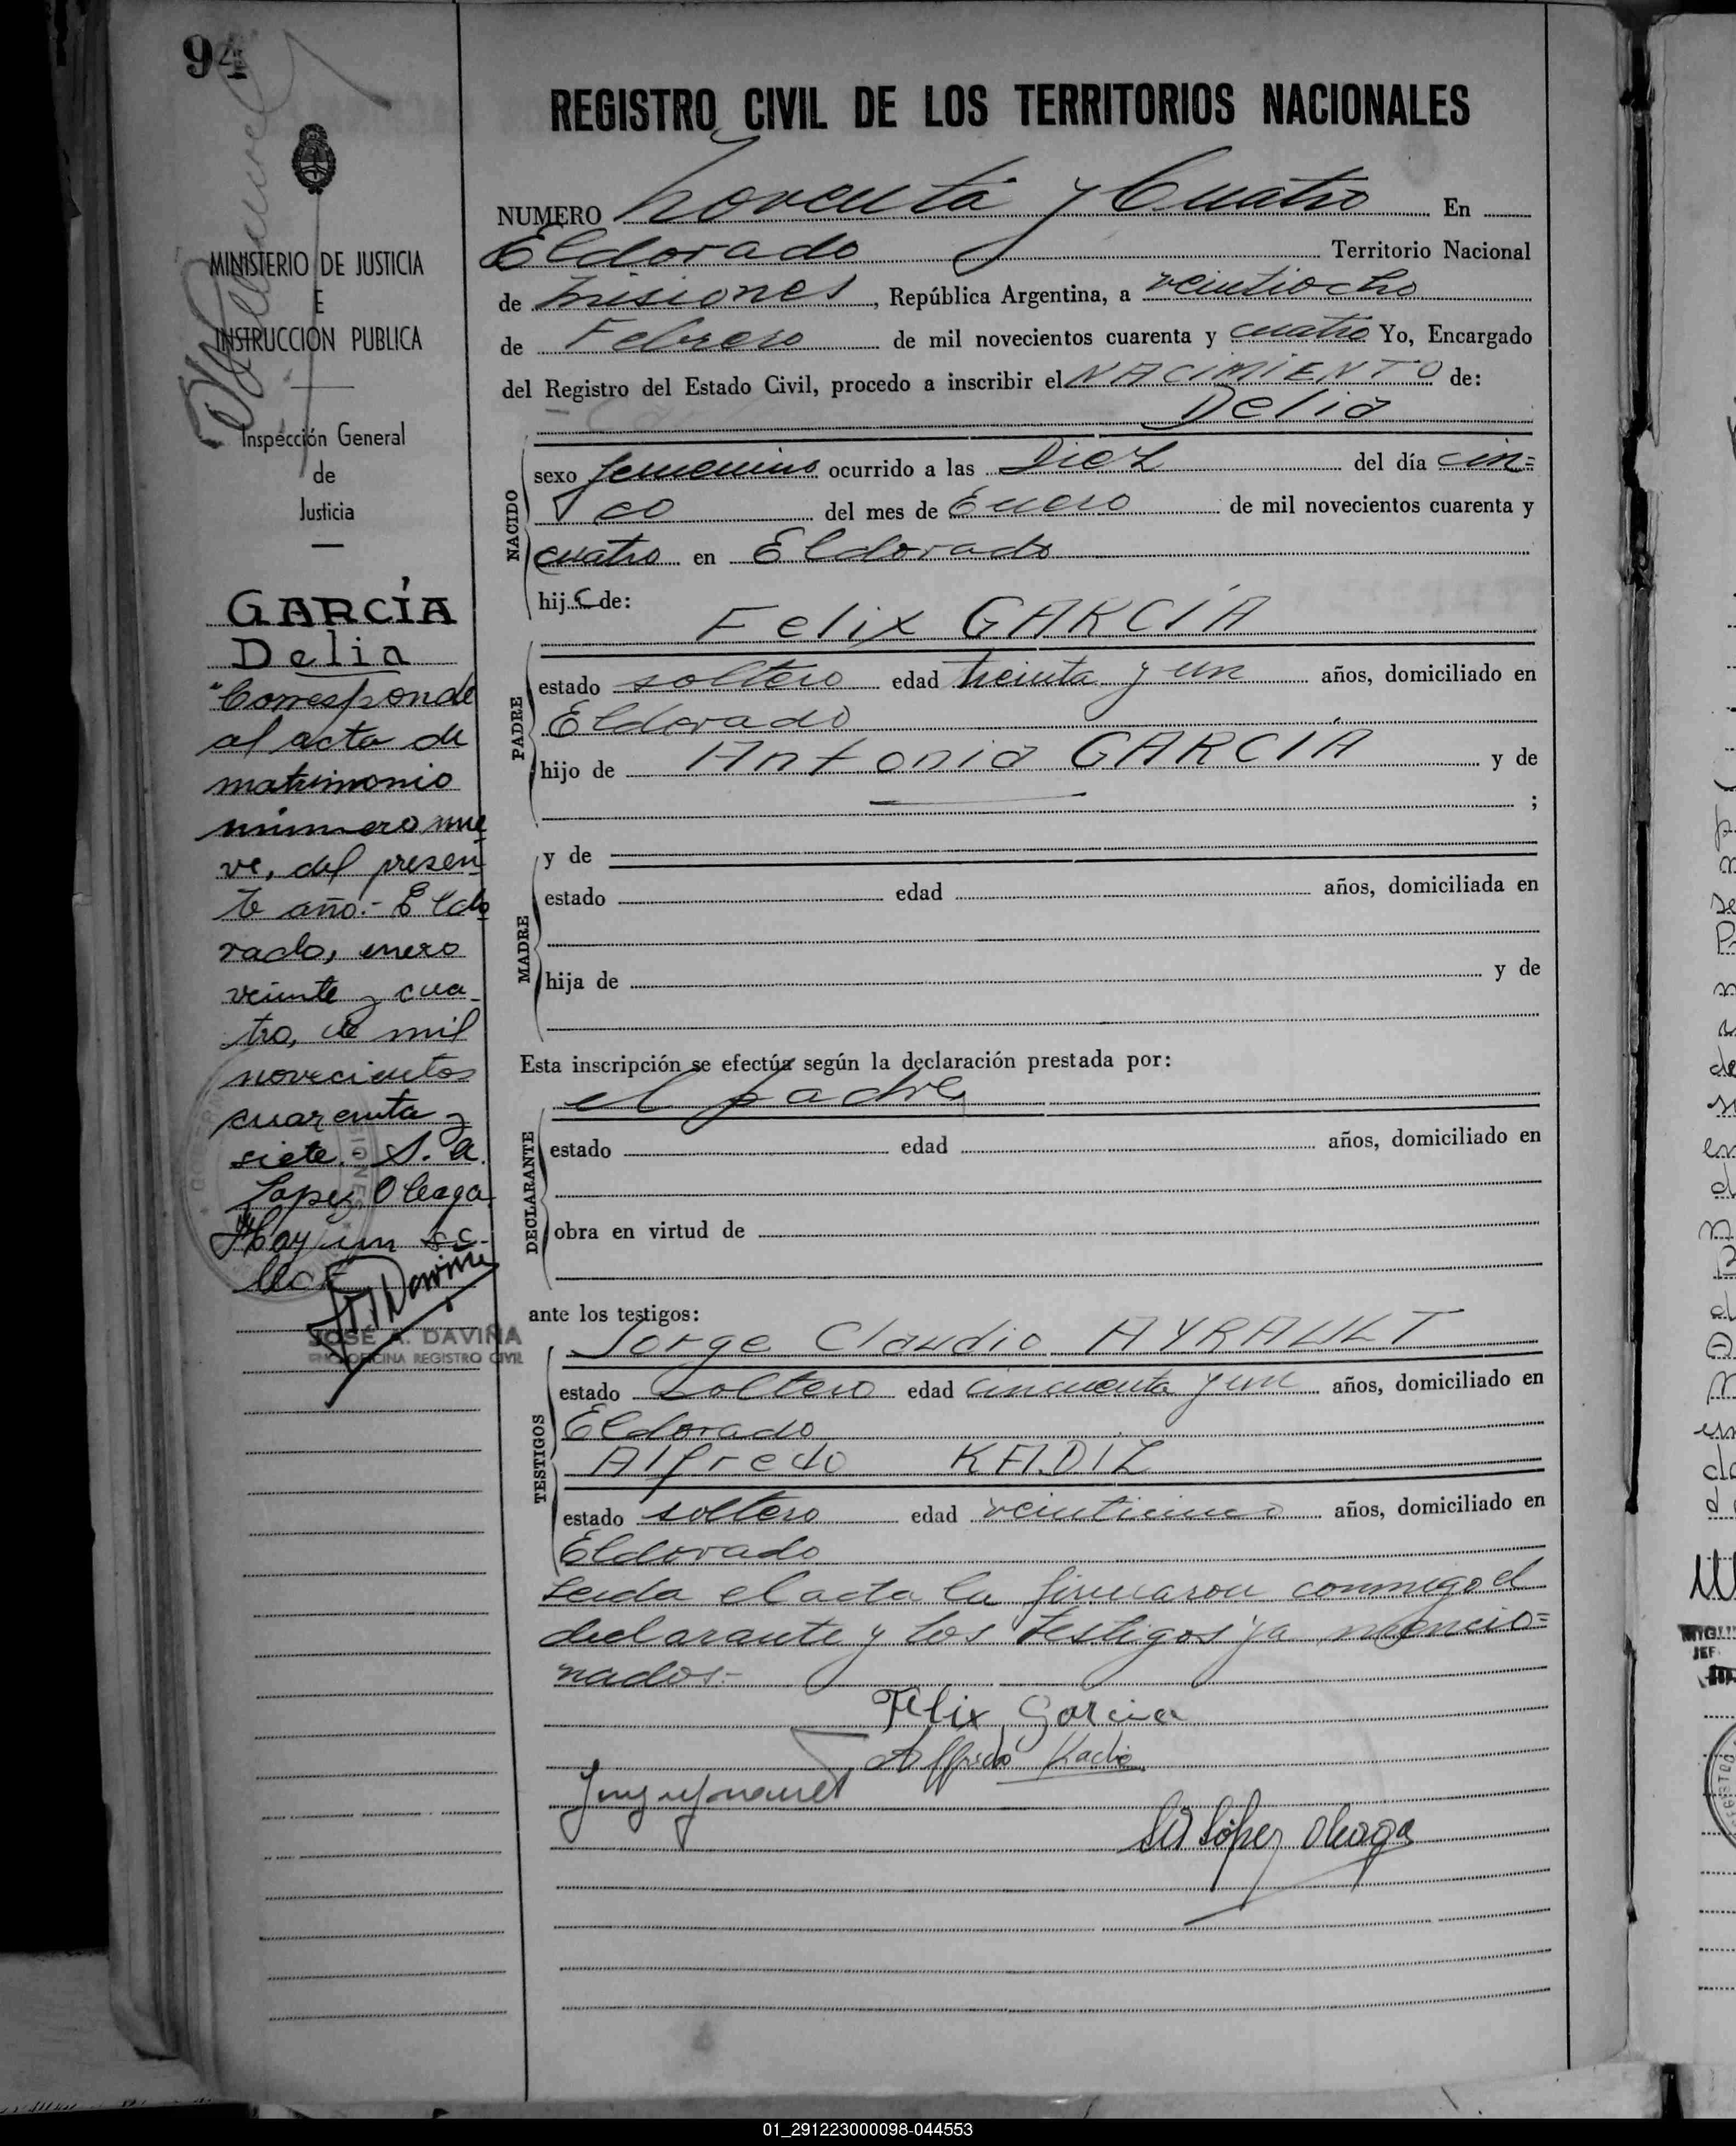 94
MINISTERIO DE JUSTICIA
E
INSTRUCCION PUBLICA
Inspección General
de
Justicia
GARCÍA
Delia
"Corresponde
al acta de
matrimonio
número nue
ve, del presen
te año.- Eldo
rado, enero
veinte y cua-
tro, de mil
novecientos
cuarenta y
siete.- S. A.
Lopez Oleaga
Hay un se-
llo"
JOSÉ A. DAVIÑA
OFICINA REGISTRO CIVIL
REGISTRO CIVIL DE LOS TERRITORIOS NACIONALES
NUMERO Noventa y Cuatro En
Eldorado Territorio Nacional
de Misiones, República Argentina, a veintiocho
de Febrero de mil novecientos cuarenta y cuatro Yo, Encargado
del Registro del Estado Civil, procedo a inscribir el NACIMIENTO de:
Delia
NACIDO
sexo femenino ocurrido a las Diez del día cin=
co del mes de Enero de mil novecientos cuarenta y
cuatro en Eldorado
hij de:
Felix GARCÍA
PADRE
estado soltero edad treinta y un años, domiciliado en
Eldorado
hijo de Antonia GARCIA y de
;
y de
MADRE
estado edad años, domiciliada en
hija de y de
Esta inscripción se efectúa según la declaración prestada por:
el padre
DECLARANTE
estado edad años, domiciliado en
obra en virtud de
ante los testigos:
Jorge Claudio AYRAULT
TESTIGOS
estado soltero edad cincuenta y un años, domiciliado en
Eldorado
Alfredo KADIZ
estado soltero edad veinticinco años, domiciliado en
Eldorado
Leida el acta la firmaron conmigo el
declarante y los testigos ya mencio=
nados.-
Felix Garcia
Alfredo
López Oleaga
01_291223000098-044553